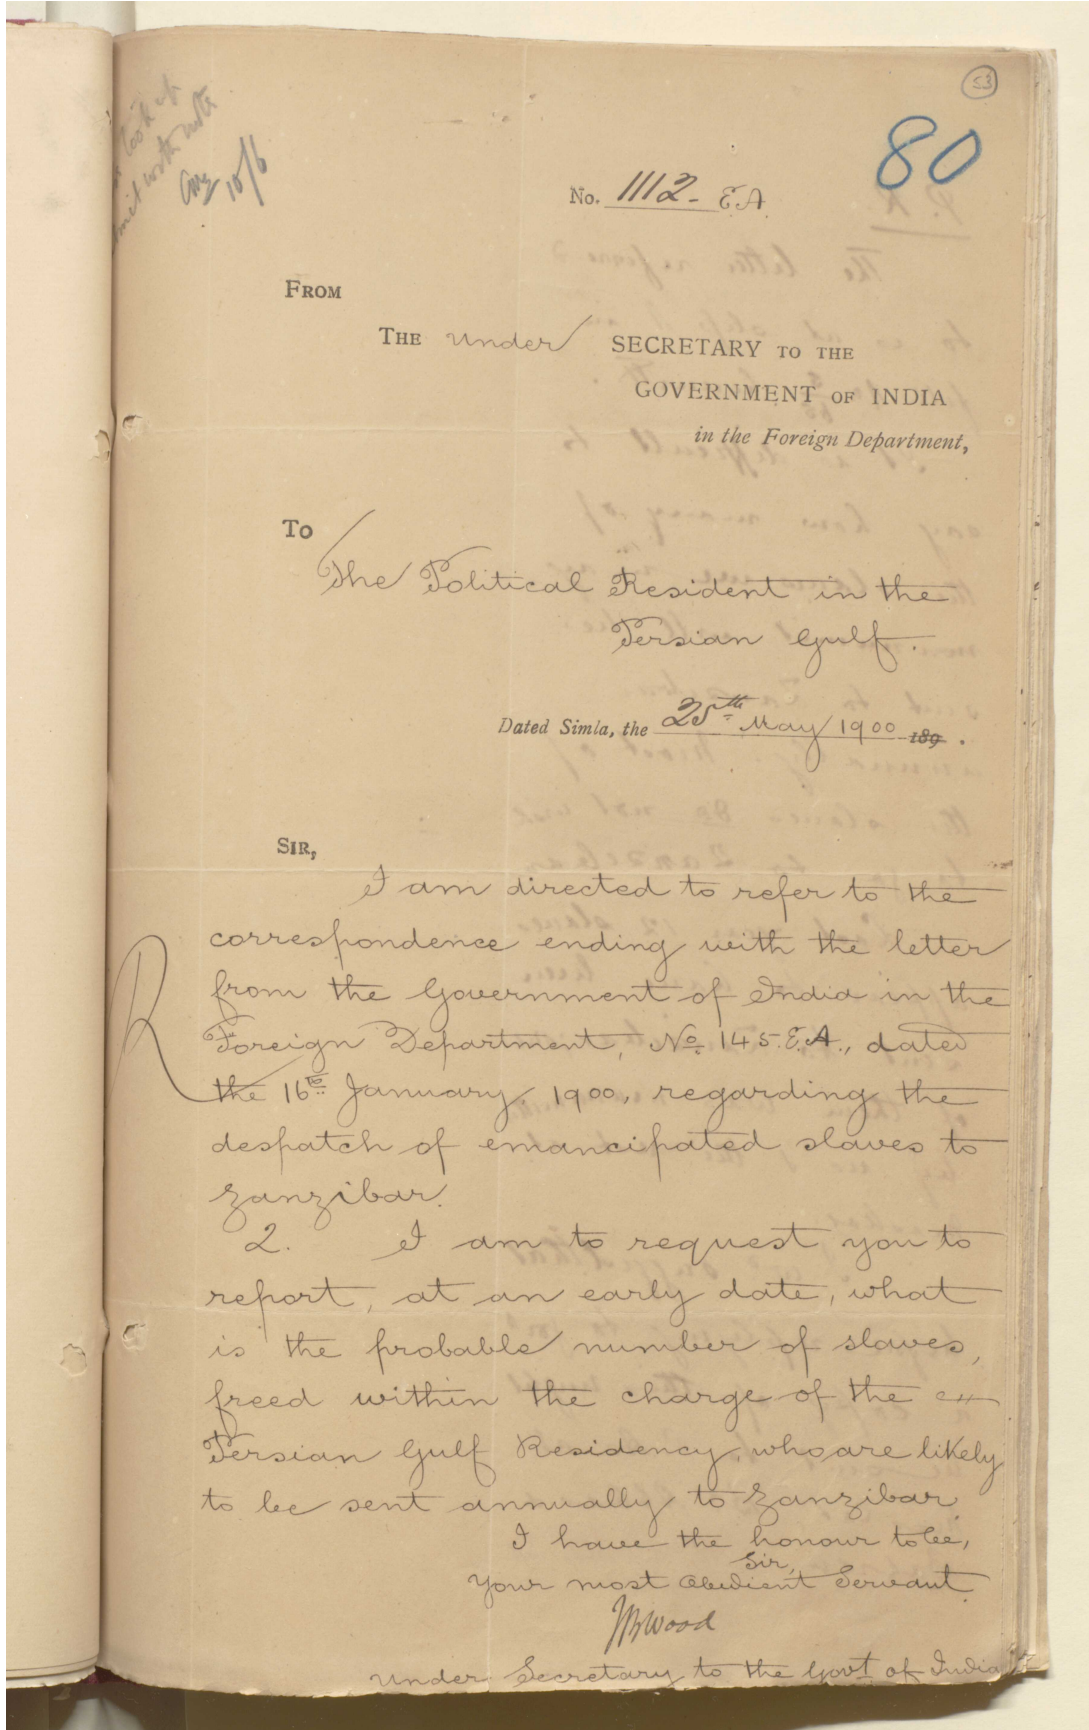 53
80
10/6
No. 1112- E.A.
FROM
THE Under SECRETARY TO THE
GOVERNMENT OF INDIA
in the Foreign Department,
TO
The Political Resident in the
Persian Gulf.
Dated Simla, the 25th May 1900 189 .
SIR,
I am directed to refer to the
correspondence ending with the letter
from the Government of India in the
Foreign Department, No. 145. E.A., dated
the 16th January 1900, regarding the
despatch of emancipated slaves to
Zanzibar.
2. I am to request you to
report, at an early date, what
is the probable number of slaves,
freed within the charge of the
Persian Gulf Residency, who are likely
to be sent annually to Zanzibar.
I have the honour to be,
Sir,
Your most Obedient Servant
JBWood
Under Secretary to the Govt of India